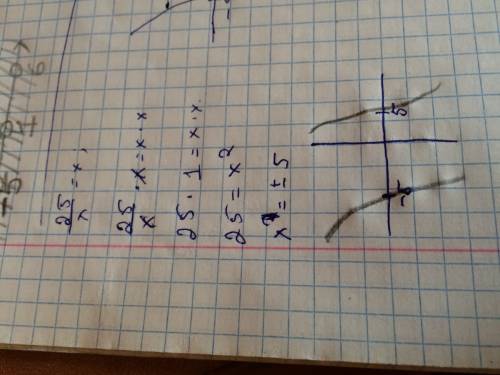 25/x = x;
25/x · x = x · x
25 · 1 = x · x.
25 = x²
x = ± 5
5
-5